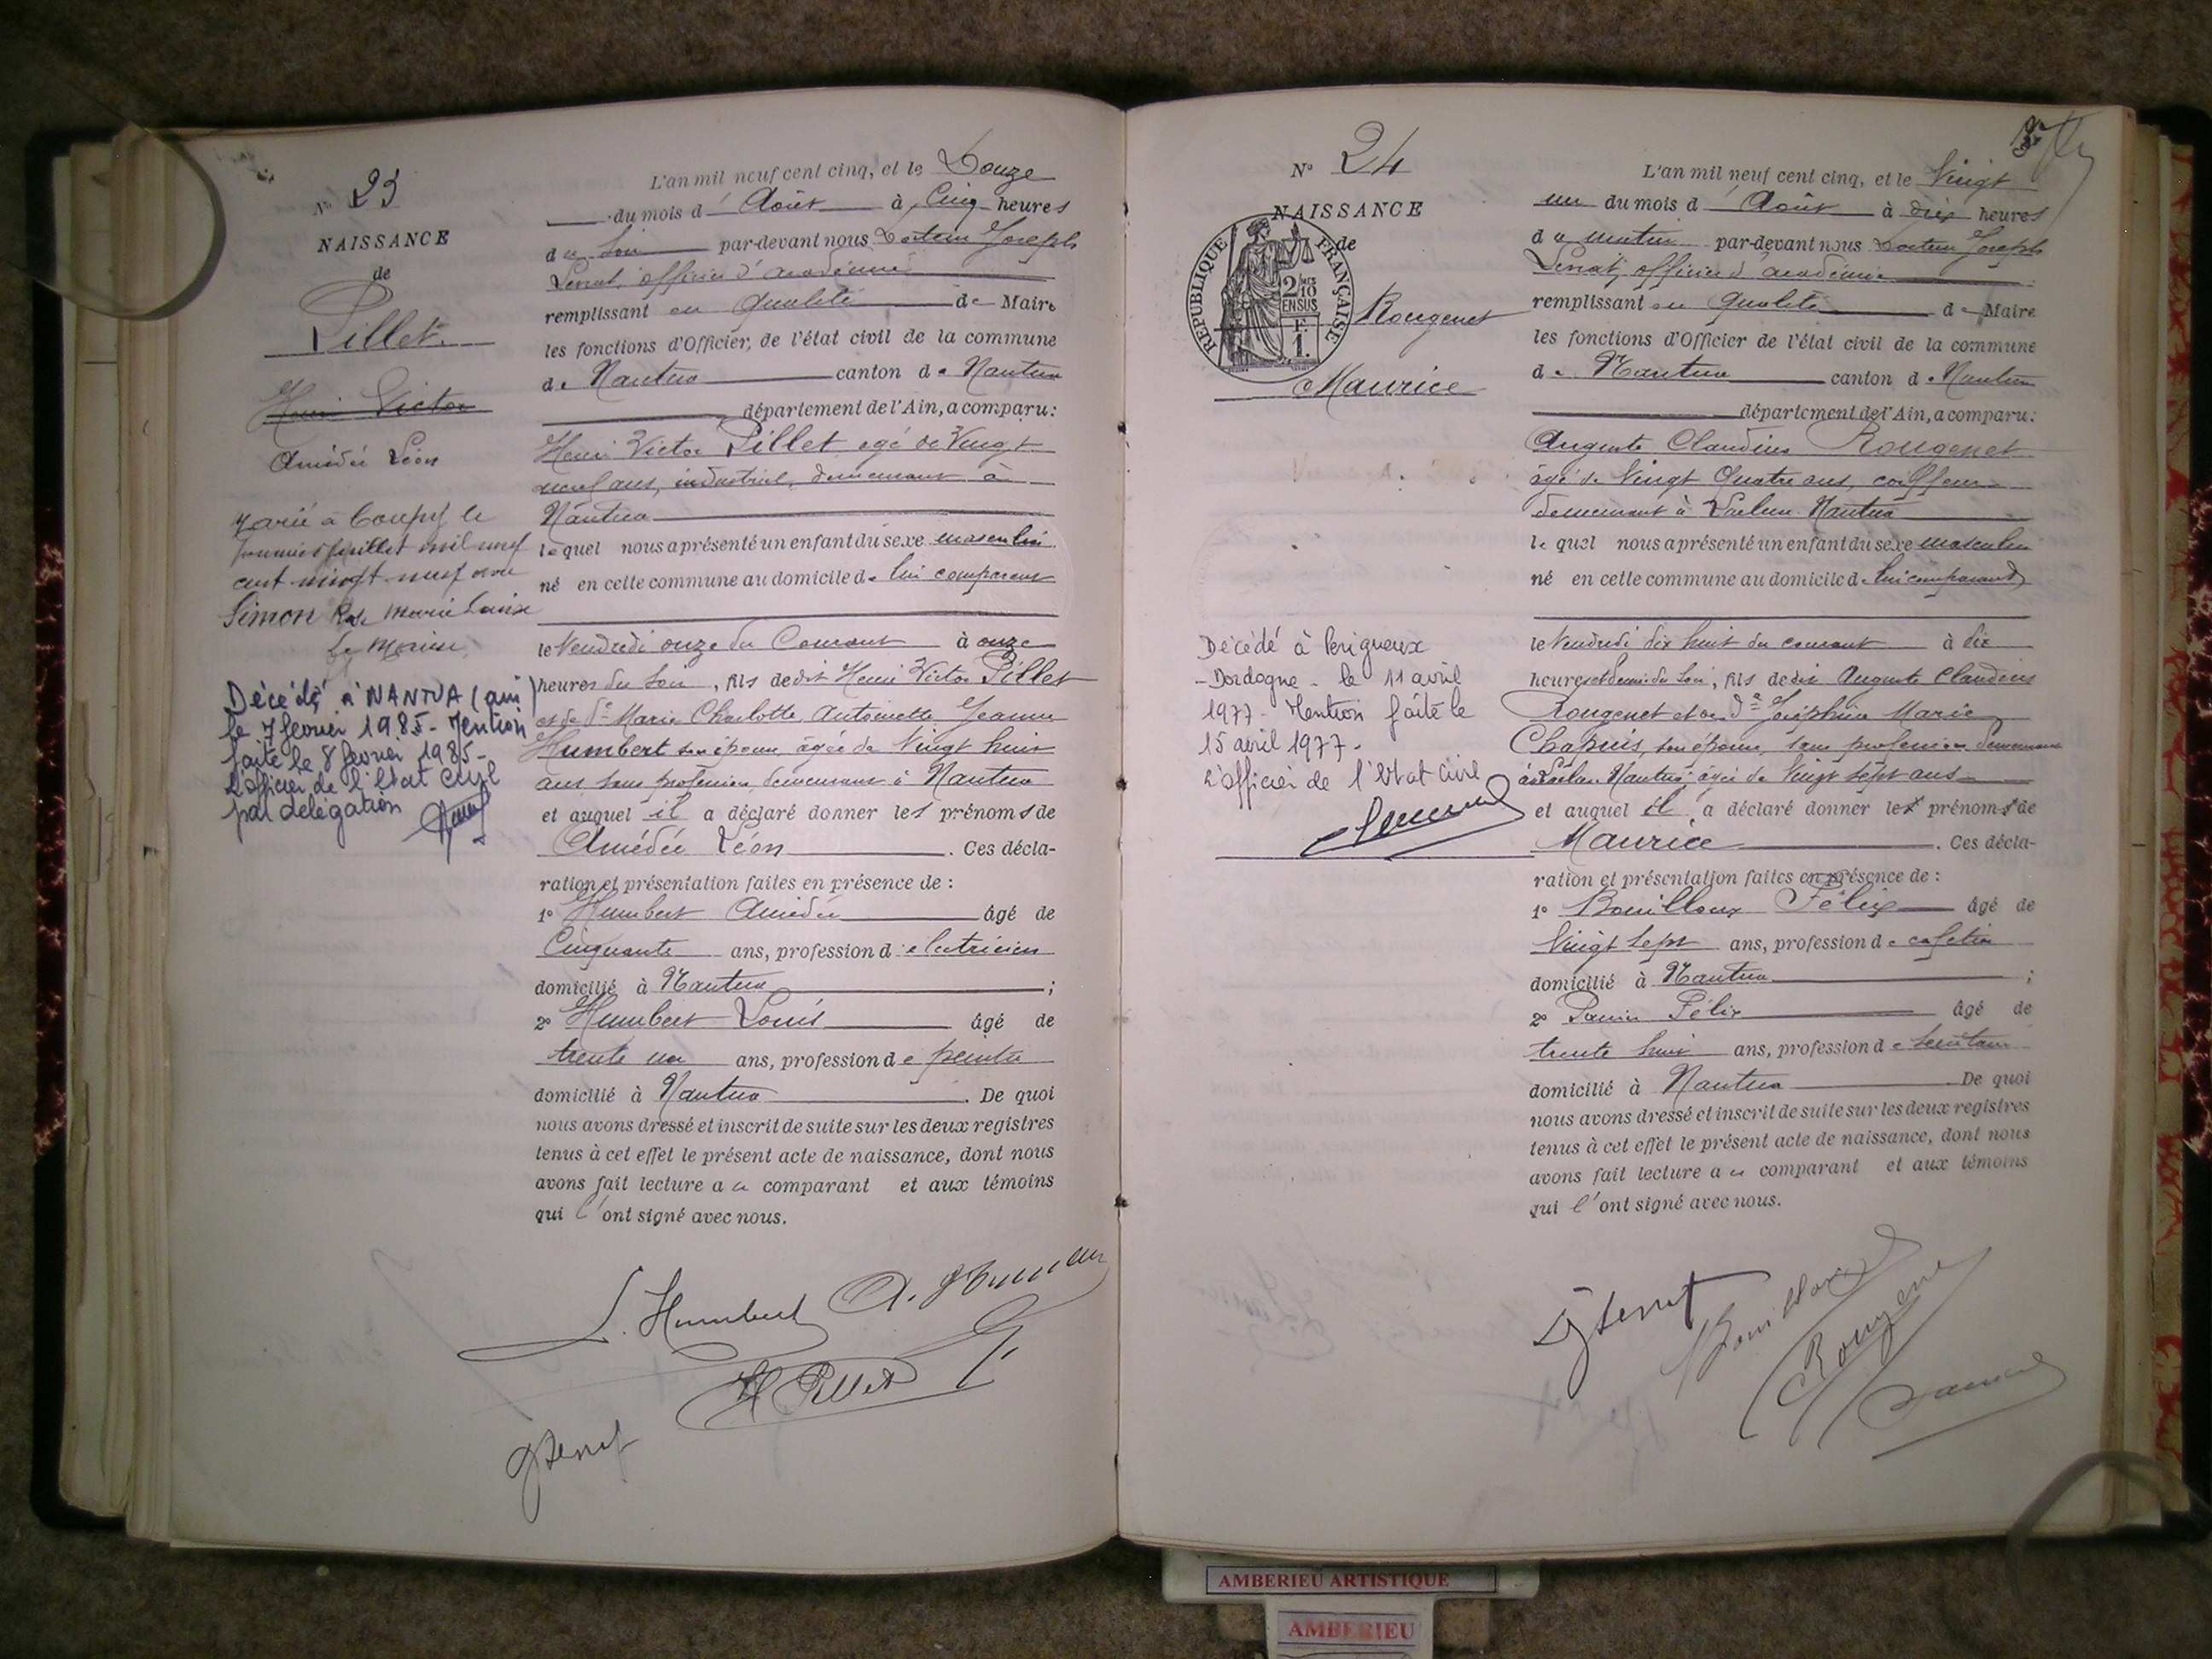 N° 23
NAISSANCE
de
Pillet
Henri Victor
Amédée Léon
Marié à le
premier juillet mil neuf
cent vingt neuf avec
Simon Rose Marie Louise
Le Maire
Décédé à NANTUA (ain)
le 7 fevrier 1985 - Mention
faite le 8 fevrier 1985 -
L'officier de l'Etat Civil
par delégation
L'an mil neuf cent cinq, et le Douze
du mois d'Août à Cinq heures
du soir par-devant nous Docteur Joseph
officier d'académie
remplissant en qualité de Maire
les fonctions d'Officier, de l'état civil de la commune
de Nantua canton de Nantua
département de l'Ain, a comparu:
Henri Victor Pillet agé de Vingt
neuf ans, industriel, demeurant à
Nantua
lequel nous a présenté un enfant du sexe masculin
né en cette commune au domicile de lui comparant
le Vendredi onze du Courant à onze
heures du soir, fils de dit Henri Victor Pillet
et de De Marie Charlotte Antoinette Jeanne
Humbert son épouse, âgée de Vingt huit
ans sans profession, demeurant à Nantua
et auquel il a déclaré donner les prénoms de
Amédée Léon. Ces décla-
ration et présentation faites en présence de :
1° Humbert Amédée âgé de
Cinquante ans, profession d'électricien
domicilié à Nantua ;
2° Humbert Louis âgé de
trente un ans, profession de peintre
domicilié à Nantua. De quoi
nous avons dressé et inscrit de suite sur les deux registres
tenus à cet effet le présent acte de naissance, dont nous
avons fait lecture au comparant et aux témoins
qui l'ont signé avec nous.
L. Humbert A. Humbert
H Pillet
N° 24
NAISSANCE
de
RÉPUBLIQUE FRANÇAISE
2/10
EN SUS
F.
1.
Rougenet
Maurice
Décédé à Perigueux
- Dordogne - le 11 avril
1977 - Mention faite le
15 avril 1977 -
L'officier de l'Etat Civil
L'an mil neuf cent cinq, et le Vingt
un du mois d'Août à dix heures
du matin par-devant nous Docteur Joseph
officier d'académie
remplissant en qualité de Maire
les fonctions d'Officier de l'état civil de la commune
de Nantua canton de Nantua
département de l'Ain, a comparu:
Auguste Claudius Rougenet
âgé de Vingt Quatre ans, coiffeur
demeurant à Nantua
lequel nous a présenté un enfant du sexe masculin
né en cette commune au domicile de lui comparant
le Vendredi dix huit du courant à dix
heures et demie du soir, fils de dit Auguste Claudius
Rougenet et de De Joséphine Marie
Chapuis, son épouse, sans profession demeurant
à Nantua âgée de Vingt sept ans
et auquel il a déclaré donner les prénoms de
Maurice. Ces décla-
ration et présentation faites en présence de :
1° Bouilloux Félix âgé de
Vingt sept ans, profession de cafetier
domicilié à Nantua ;
2° Félix âgé de
trente huit ans, profession de secrétaire
domicilié à Nantua De quoi
nous avons dressé et inscrit de suite sur les deux registres
tenus à cet effet le présent acte de naissance, dont nous
avons fait lecture au comparant et aux témoins
qui l'ont signé avec nous.
Bouilloux
Rougenet
AMBERIEU ARTISTIQUE
AMBERIEU